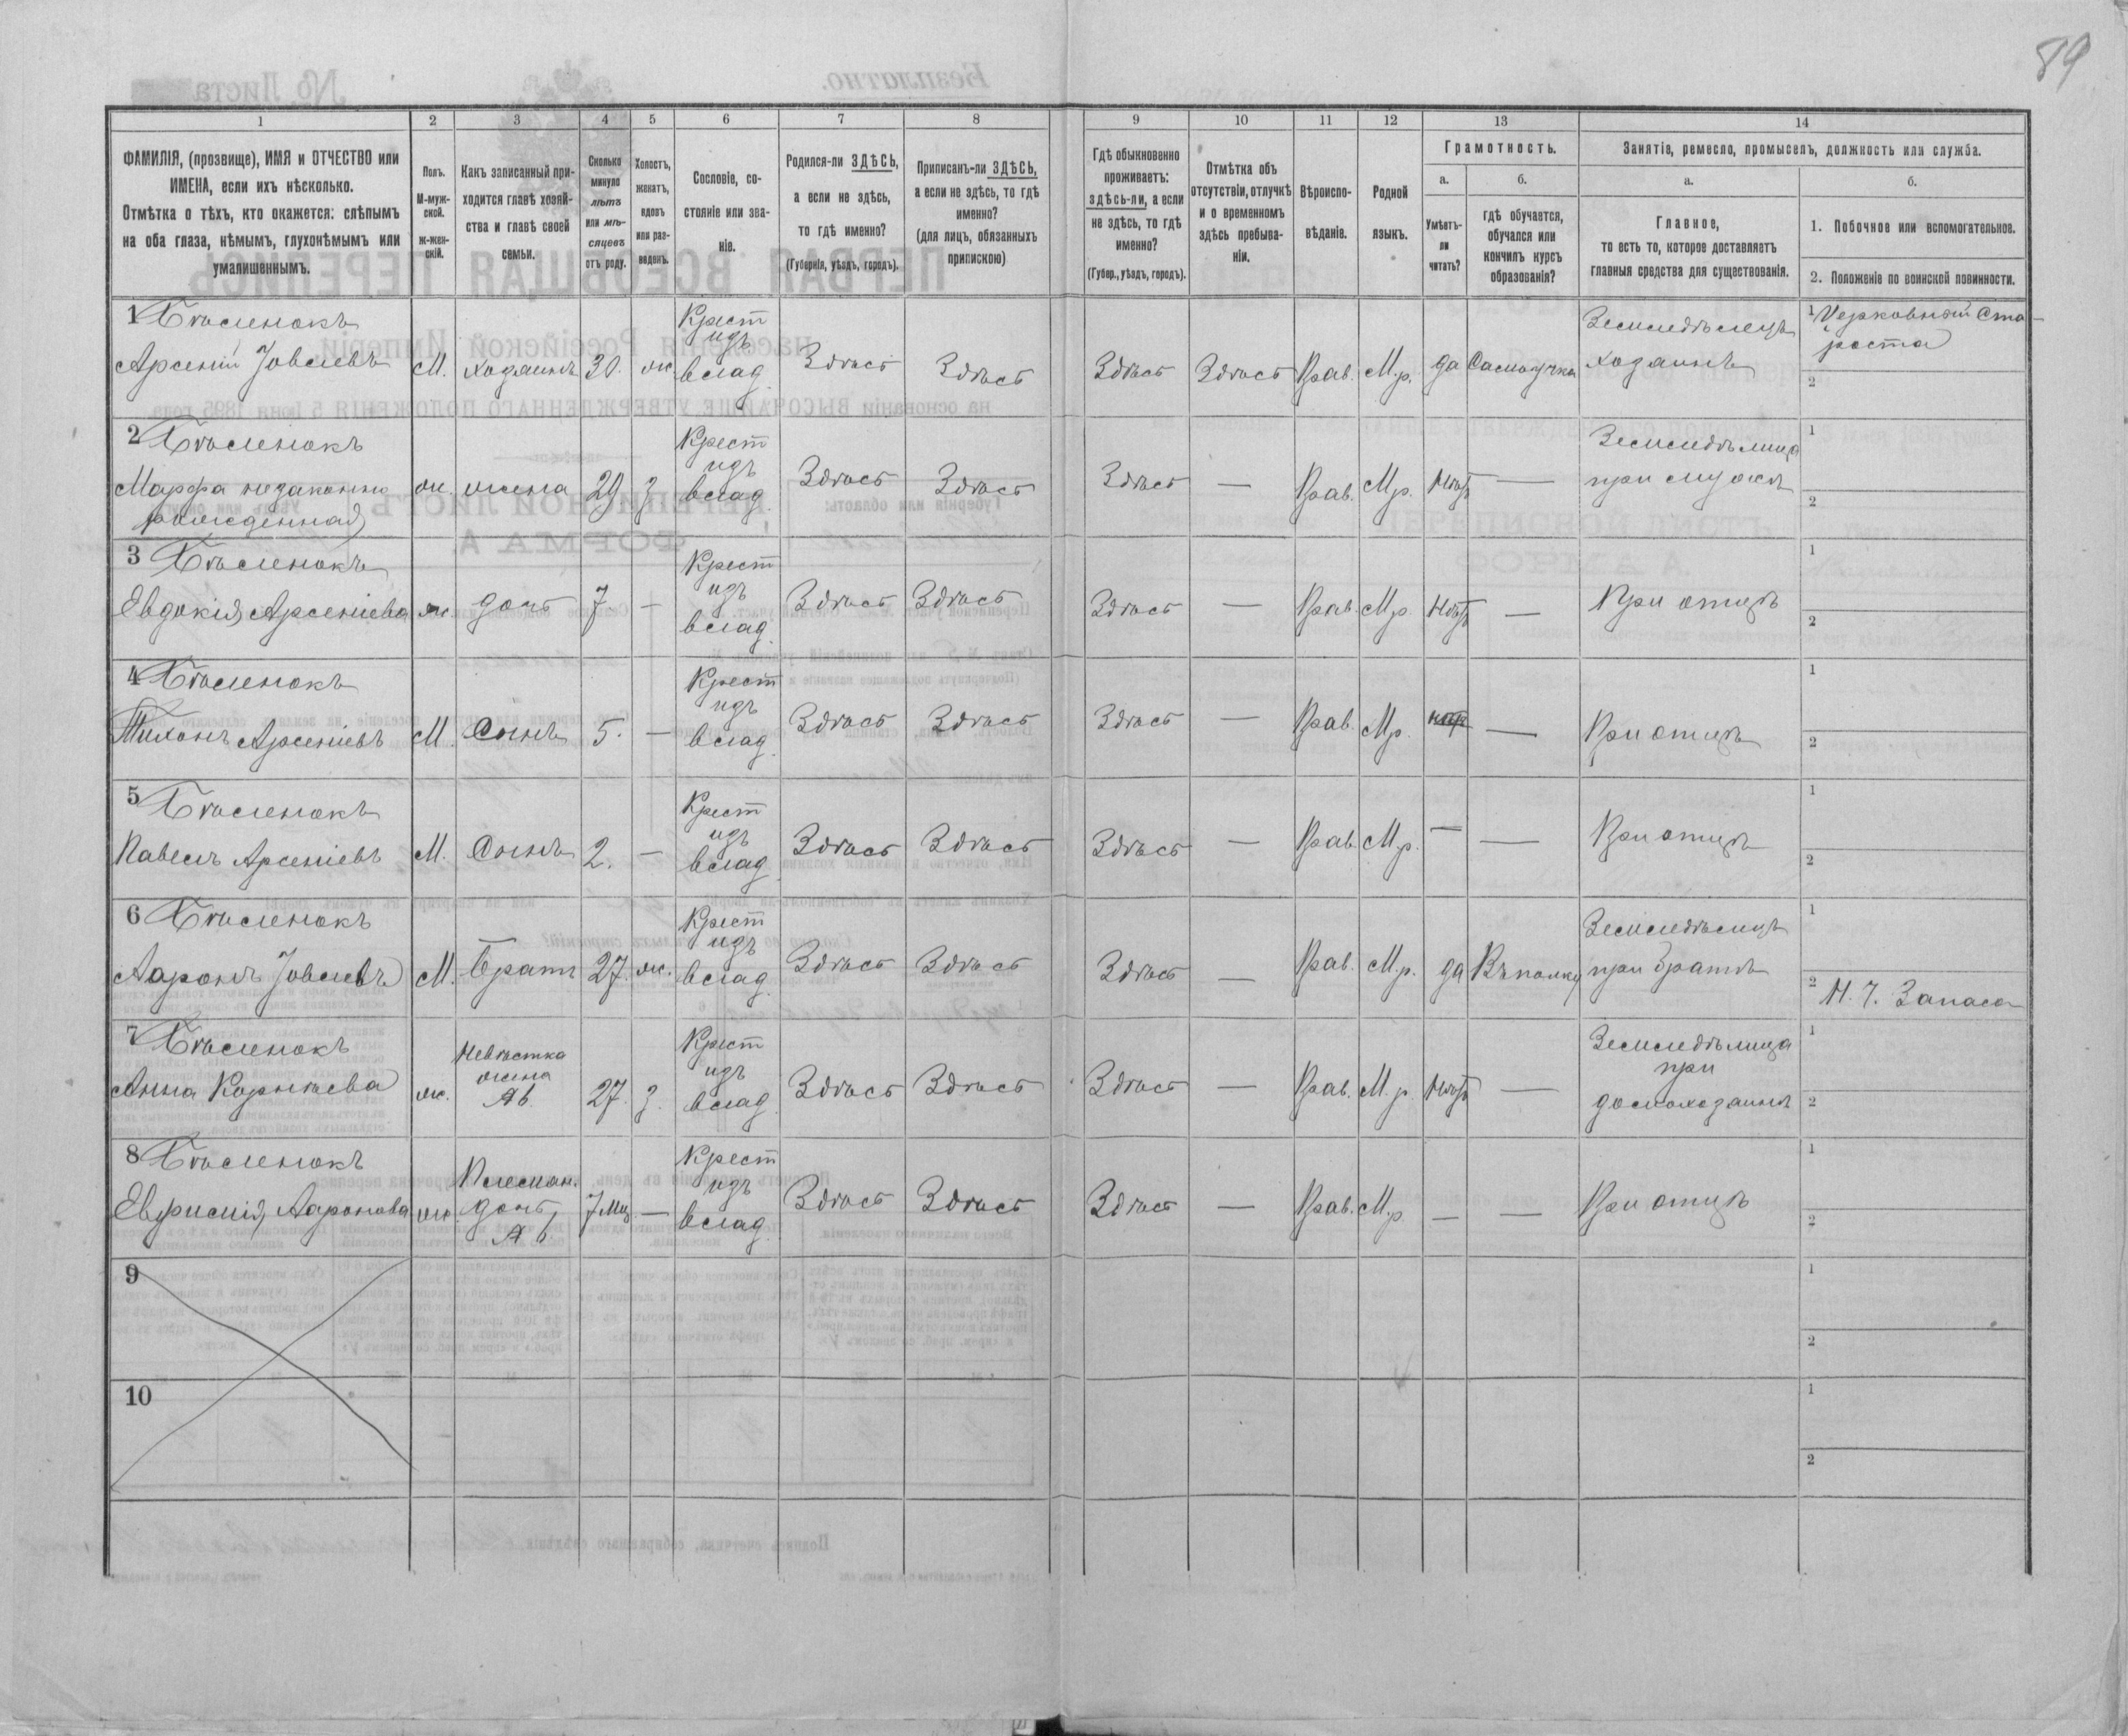 89
1 2 3 4 5 6 7 8 9 10 11 12 13 14
ФАМИЛІЯ, (прозвище), ИМЯ и ОТЧЕСТВО или
ИМЕНА, если ихъ нѣсколько.
Отмѣтка о тѣхъ, кто окажется: слѣпымъ
на оба глаза, нѣмымъ, глухонѣмымъ или
умалишеннымъ.
Полъ.
М-муж-
ской.
Ж-жен-
скій.
Какъ записанный при-
ходится главѣ хозяй-
ства и главѣ своей
семьи.
Сколько
минуло
лѣтъ
или мѣ-
сяцевъ
отъ роду.
Холостъ,
женатъ,
вдовъ
или раз-
веденъ.
Сословіе, со-
стояніе или зва-
ніе.
Родился-ли ЗДѢСЬ,
а если не здѣсь,
то гдѣ именно?
(Губернія, уѣздъ, городъ).
Приписанъ-ли ЗДѢСЬ,
а если не здѣсь, то гдѣ
именно?
(для лицъ, обязанныхъ
припискою)
Гдѣ обыкновенно
проживаетъ:
здѣсь-ли, а если
не здѣсь, то гдѣ
именно?
(Губер., уѣздъ, городъ).
Отмѣтка объ
отсутствіи, отлучкѣ
и о временномъ
здѣсь пребыва-
ніи.
Вѣроиспо-
вѣданіе.
Родной
языкъ.
Грамотность.
а.
Умѣетъ-
ли
читать?
б.
гдѣ обучается,
обучался или
кончилъ курсъ
образованія?
Занятіе, ремесло, промыселъ, должность или служба.
а.
Главное,
то есть то, которое доставляетъ
главныя средства для существованія.
б.
1. Побочное или вспомогательное.
2. Положеніе по воинской повинности.
1
Арсеній Іовлевъ
М. хозяинъ 30. ж.
Крест
изъ
влад.
Здѣсь Здѣсь Здѣсь Здѣсь Прав. М.р. да Самоучка
Земледѣлецъ
хозяинъ
1 Церковный Ста-
роста
2
2
Марфа незаконно
рожденная
ж. жена 29 з
Крест
изъ
влад.
Здѣсь Здѣсь Здѣсь — Прав. М.р. Нѣтъ —
Земледѣлица
при мужѣ
1
2
3
Евдокія Арсеніева ж. дочь 7. —
Крест
изъ
влад.
Здѣсь Здѣсь Здѣсь — Прав. М.р. Нѣтъ —
При отцѣ
1
2
4
Тихонъ Арсеніевъ М. Сынъ 5. —
Крест
изъ
влад.
Здѣсь Здѣсь Здѣсь — Прав. М.р. —
При отцѣ
1
2
5
Павелъ Арсеніевъ М. Сынъ 2. —
Крест
изъ
влад.
Здѣсь Здѣсь Здѣсь — Прав. М.р. — —
При отцѣ
1
2
6
Ааронъ Іовлевъ М. Братъ 27. ж.
Крест
изъ
влад.
Здѣсь Здѣсь Здѣсь — Прав. М.р. да Въ полку
Земледѣлецъ
при братѣ
1
2 Н. Ч. Запаса
7
Анна Корнѣева ж.
Невѣстка
жена
А 6.
27. з.
Крест
изъ
влад.
Здѣсь Здѣсь Здѣсь — Прав. М.р. Нѣтъ —
Земледѣлица
при
домохозяинѣ
1
2
8
Евфимія Ааронова ж.
Племян.
дочь
А 6.
7 Мц. —
Крест
изъ
влад.
Здѣсь Здѣсь Здѣсь — Прав. М.р. — —
При отцѣ
1
2
9
1
2
10
1
2